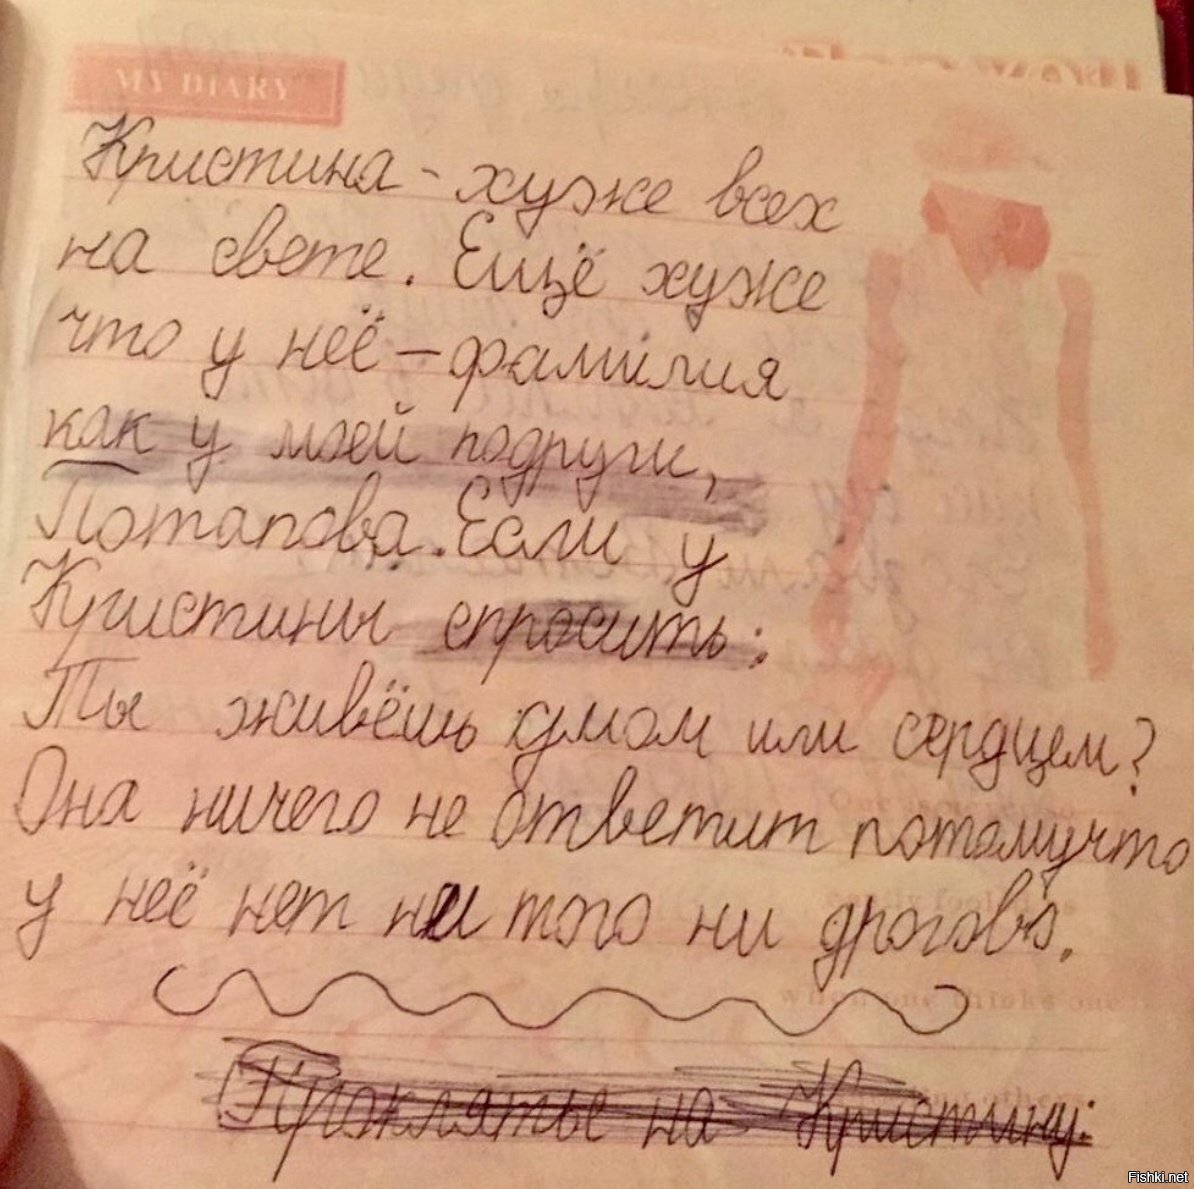 MY DIARY
Кристина - хуже всех
на свете. Ещё хуже
что у неё – фамилия
как у моей подруги,
Потапова. Если у
Кристины спросить:
Ты живёшь умом или сердцем?
Она ничего не ответит потомучто
у неё нет ни того ни дрогова.
Проклятье на Кристину:
Fishki.net